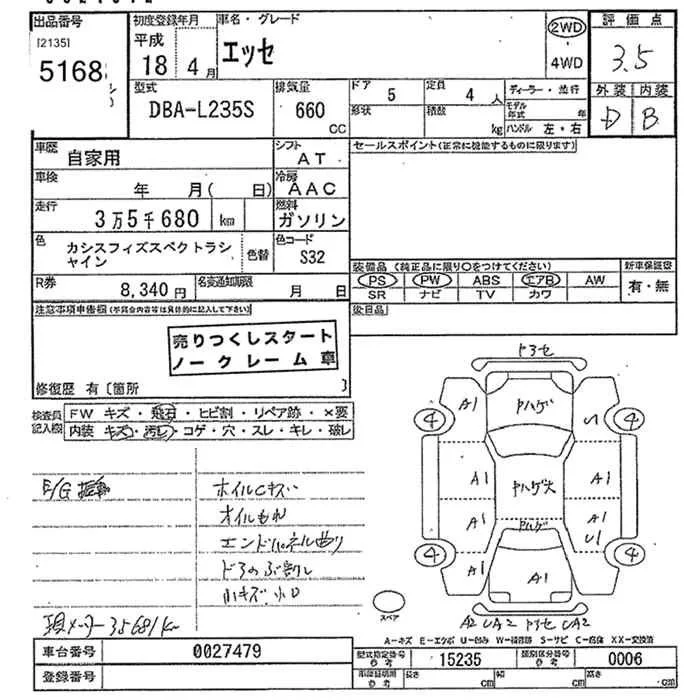 出品番号
[2135]
5168
初度登録年月
平成
18 4 月
車名・グレード
エッセ
2WD
4WD
評価点
3.5
外装 内装
D B
型式
DBA-L235S
排気量
660
CC
ドア
5
定員
4 人
形状
積数
kg
ディーラー・並行
モデル年式 年
ハンドル 左・右
車歴
自家用
シフト
AT
車検
年 月( 日)
冷房
AAC
走行
3万5千680 km
燃料
ガソリン
色
カシスフィズスペクトラシャイン
色替
色コード
S32
R券
8,340円
名変通知期限
月 日
セールスポイント(正常に機能するものに限ります)
装備品(純正品に限り○をつけてください)
新車保証書
PS PW ABS エアB AW
SR ナビ TV カワ
有・無
後日品
注意事項申告欄(不具合内容等は具体的に記入して下さい)
売りつくしスタート
ノークレーム車
修復歴 有〔箇所 〕
検査員記入欄
FW キズ・飛石・ヒビ割・リペア跡・×要
内装 キズ・汚レ・コゲ・穴・スレ・キレ・破レ
E/G
ホイルCキズ
オイルもれ
エンドパネル曲り
ドアのぶ割レ
小キズ小凹
現メーター35681km
ドアセ
A1
ヤハゲ
U
4
4
A1
ヤハゲ大
A1
A1
ヤハゲ
A1
U1
4
4
A1
スペア
A2 UA2 ドアセ UA2
A-キズ E-エクボ U-凹み W-補修跡 S-サビ C-腐蝕 XX-交換済
車台番号
0027479
登録番号
型式指定番号
参考
15235
類別区分番号
参考
0006
車車証明用
参考
長さ cm
幅 cm
高さ cm